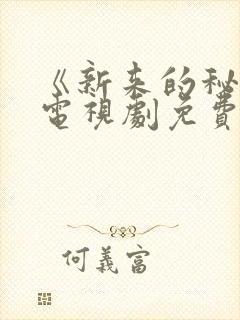 《新来的秘
電視劇免費
何義富